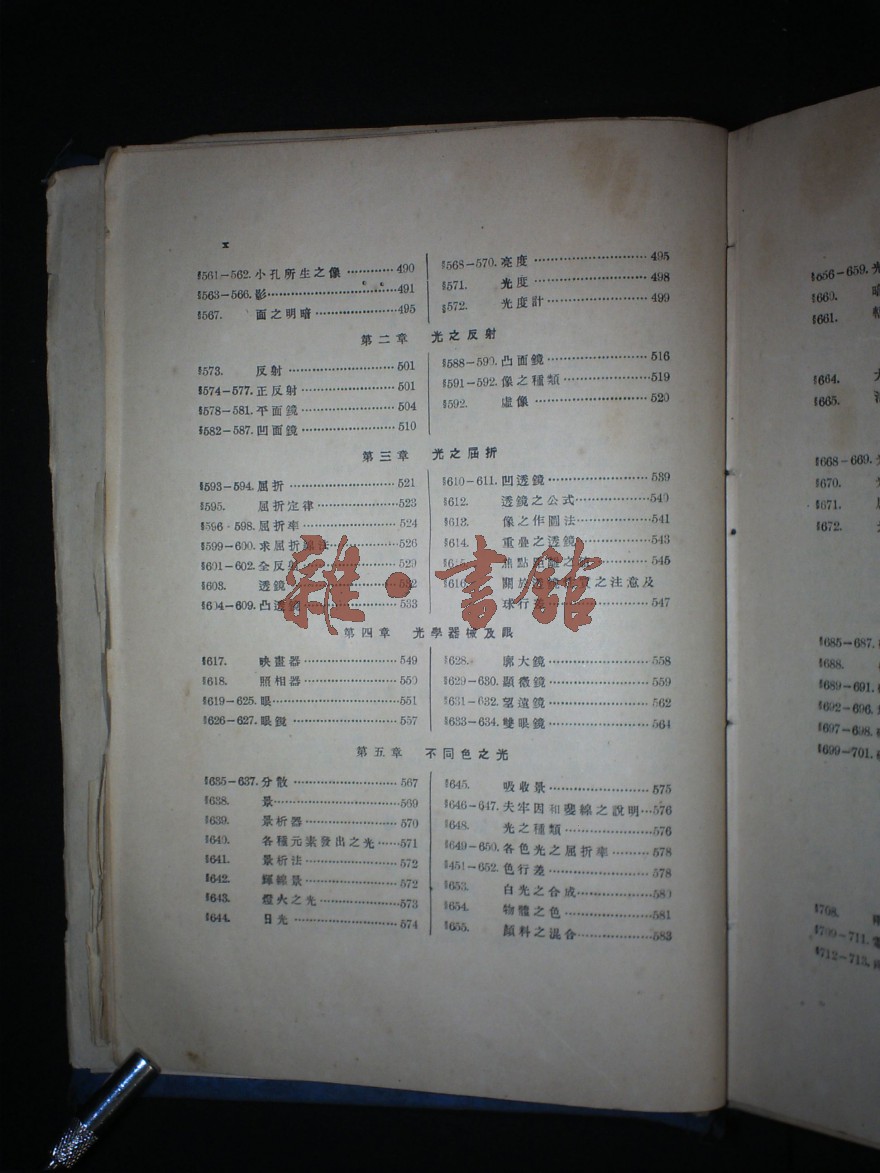 x
§561-562. 小孔所生之像 ············ 490
§563-566. 影 ························ 491
§567. 面之明暗 ·················· 495
§568-570. 亮度 ······················ 495
§571. 光度 ······················ 498
§572. 光度計 ··················· 499
第二章 光之反射
§573. 反射 ······················ 501
§574-577. 正反射 ··················· 501
§578-581. 平面鏡 ··················· 504
§582-587. 凹面鏡 ··················· 510
§588-590. 凸面鏡 ··················· 516
§591-592. 像之種類 ················ 519
§592. 虛像 ······················ 520
第三章 光之屈折
§593-594. 屈折 ······················ 521
§595. 屈折定律 ················ 523
§596-598. 屈折率 ··················· 524
§599-600. 求屈折線法 ············· 526
§601-602. 全反射 ··················· 529
§603. 透鏡 ······················ 532
§604-609. 凸透鏡 ··················· 533
§610-611. 凹透鏡 ··················· 539
§612. 透鏡之公式 ············· 540
§613. 像之作圖法 ············· 541
§614. 重叠之透鏡 ············· 543
焦點距離之 545
§616. 關於透鏡 之注意及
球行差 ··················· 547
第四章 光學器械及眼
§617. 映畫器 ··················· 549
§618. 照相器 ··················· 550
§619-625. 眼 ························· 551
§626-627. 眼鏡 ······················ 557
§628. 廓大鏡 ··················· 558
§629-630. 顯微鏡 ··················· 559
§631-632. 望遠鏡 ··················· 562
§633-634. 雙眼鏡 ··················· 564
第五章 不同色之光
§635-637. 分散 ······················ 567
§638. 景 ························· 569
§639. 景析器 ··················· 570
§640. 各種元素發出之光 ······ 571
§641. 景析法 ··················· 572
§642. 輝線景 ··················· 572
§643. 燈火之光 ················ 573
§644. 日光 ······················ 574
§645. 吸收景 ··················· 575
§646-647. 夫牢因和斐線之說明 ··· 576
§648. 光之種類 ················ 576
§649-650. 各色光之屈折率 ········· 578
§451-652. 色行差 ··················· 578
§653. 白光之合成 ············· 580
§654. 物體之色 ················ 581
§655. 顏料之混合 ············· 583
雜·書館
§656-659. 光
§660.
§661.
§664.
§665.
§668-669.
§670.
§671.
§672.
§685-687.
§688.
§689-691.
§692-696.
§697-698.
§699-701.
§708.
§709-711.
§712-713.